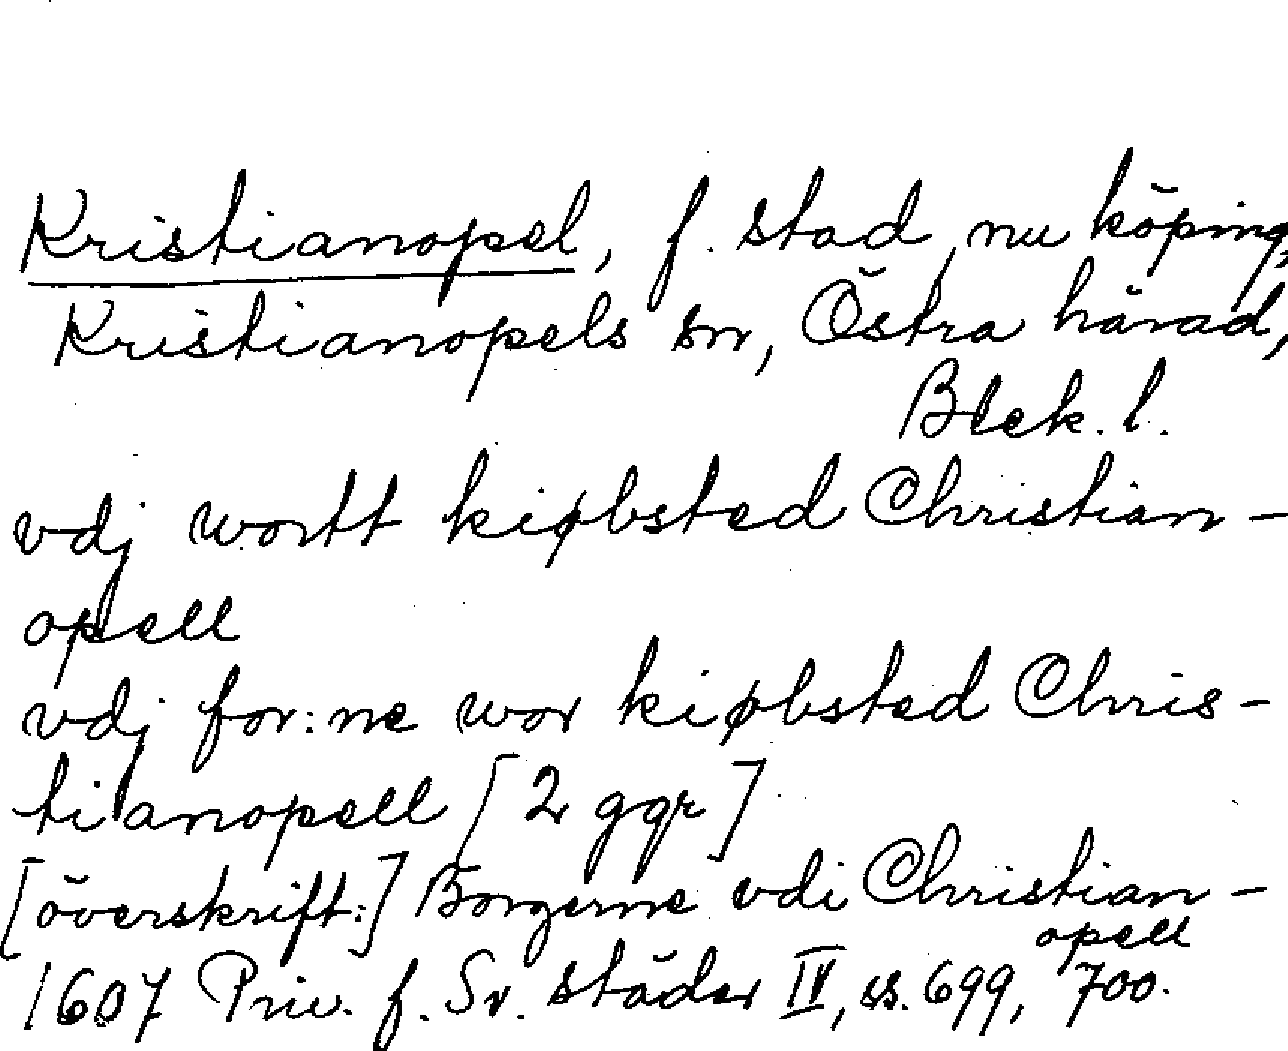 Kristianopel, f. stad, nu köping,
Kristianopels sn, Östra härad,
Blek. l.
vdj wortt kiøbsted Christian-
opell
vdj for:ne wor kiøbsted Chris-
tianopell [2 ggr]
[överskrift:] Borgerne vdi Christian-
opell
1607 Priv. f. Sv. städer IV, ss. 699, 700.